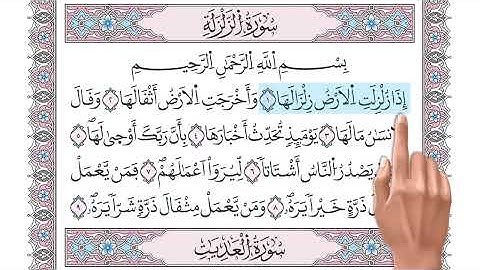 سُورَةُ الزَّلْزَلَةِ
بِسْمِ اللَّهِ الرَّحْمَٰنِ الرَّحِيمِ
إِذَا زُلْزِلَتِ الْأَرْضُ زِلْزَالَهَا ١ وَأَخْرَجَتِ الْأَرْضُ أَثْقَالَهَا ٢ وَقَالَ
مَا لَهَا ٣ يَوْمَئِذٍ تُحَدِّثُ أَخْبَارَهَا ٤ بِأَنَّ رَبَّكَ أَوْحَىٰ لَهَا ٥
يَصْدُرُ النَّاسُ أَشْتَاتًا ٦ لِيُرَوْا أَعْمَٰلَهُمْ ٧ فَمَنْ يَعْمَلْ
ذَرَّةٍ خَيْرًا يَرَهُ ٨ وَمَنْ يَعْمَلْ مِثْقَالَ ذَرَّةٍ شَرًّا يَرَهُ ٩
سُورَةُ الْعَٰدِيَٰتِ